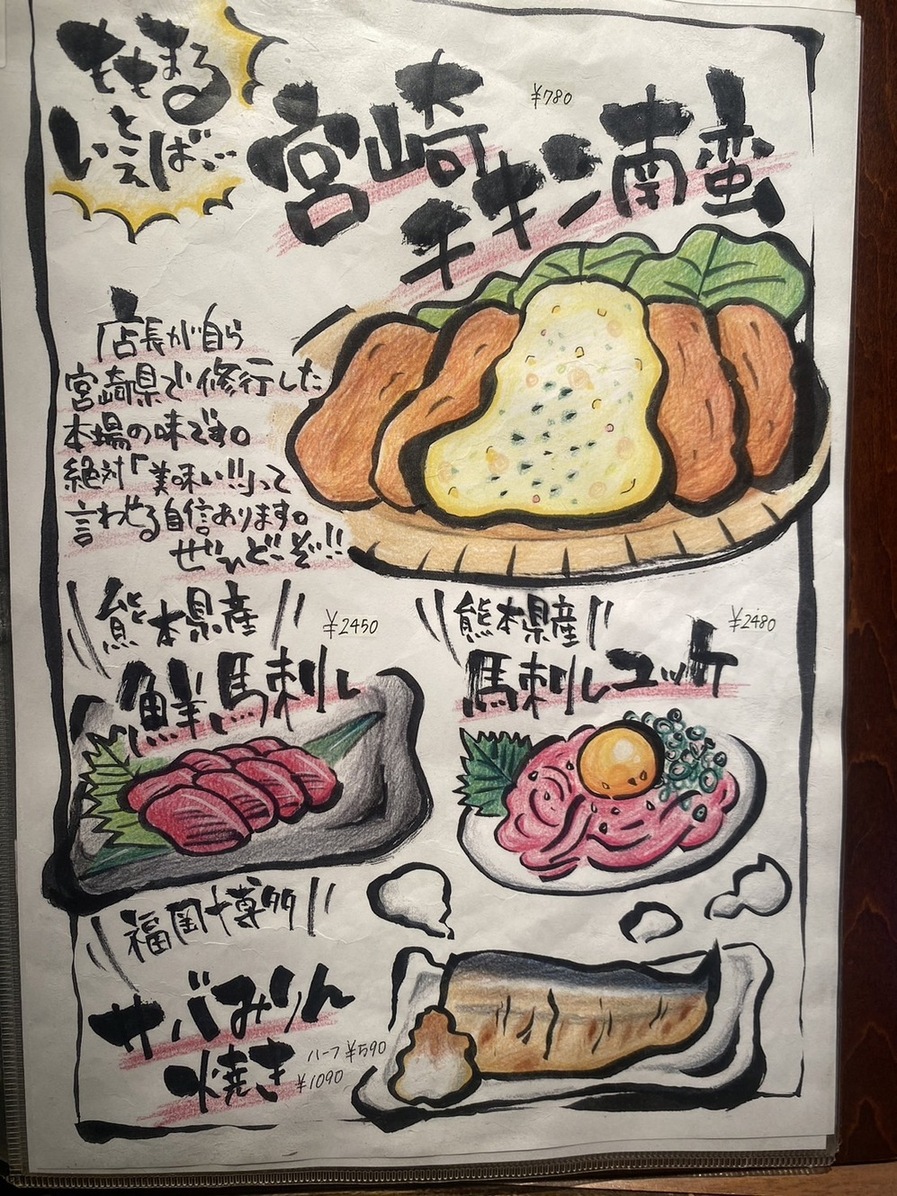 ももまる
といえば…
¥780
宮崎
チキン南蛮
店長が自ら
宮崎県で修行した
本場の味です。
絶対「美味い!!」って
言わせる自信あります。
ぜひどーぞ!!
熊本県産
¥2450
鮮馬刺し
熊本県産
¥2480
馬刺しユッケ
福岡博多
サバみりん
焼き
ハーフ ¥590
¥1090